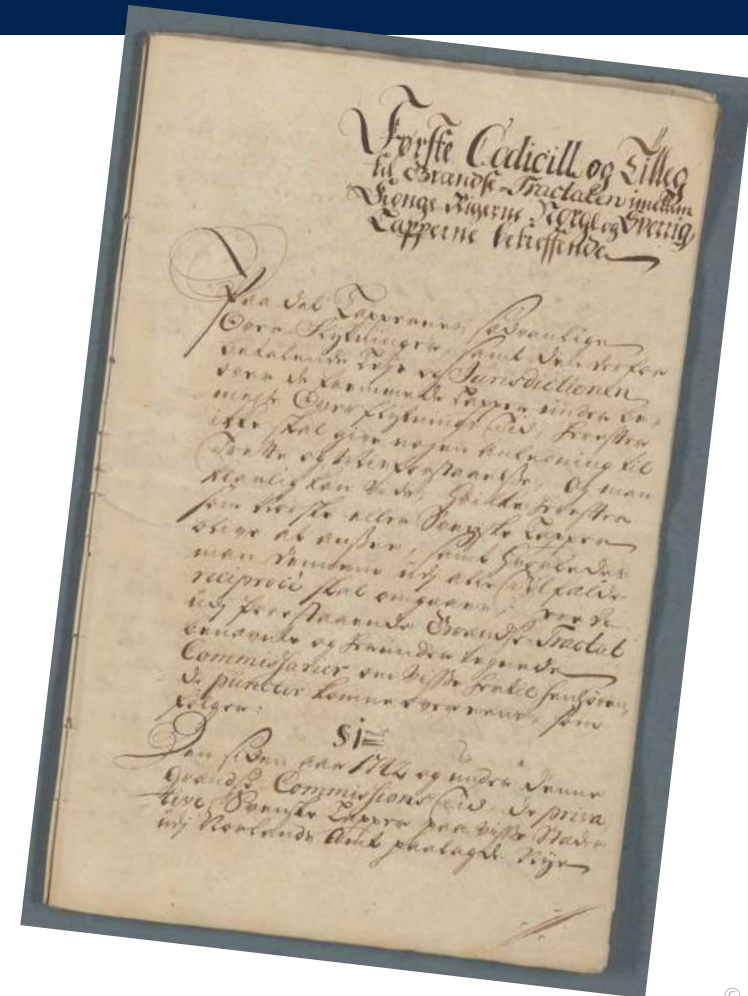 Første Codicill og Tilleg
til Grændse-Tractaten imellem
Konge Rigerne Norge og Sverrig
Lapperne betreffende
Paa det Lappernes sædvanlige
Over-Flytninger, samt den derfor
betalende Leje og Jurisdictionen
over de fremmede Lapper under be-
melte Overflytnings Tiid, herefter
icke skal give nogen Anledning til
Trette og Misforstaaelse, Og man
klarlig kan vide, Hvilke herefter
som Norske eller Svenske Lapper
blive at ansee, samt Hvorledes
man dermed udj alle Tilfælde
reciprocé skal omgaaes; ere de
udj foorstaaende Grændse-Tractat
benævnte og herunder tegnede
Commissarier om visse hertil henhøren
de puncter komne overeens, som
følger:
§ 1
Den siden aar 1742 og under denne
Grændse Commissions Tiid de priva
tive Svenske Lapper paa visse Stæder
udj Norlands Amt paalagde Nye
©